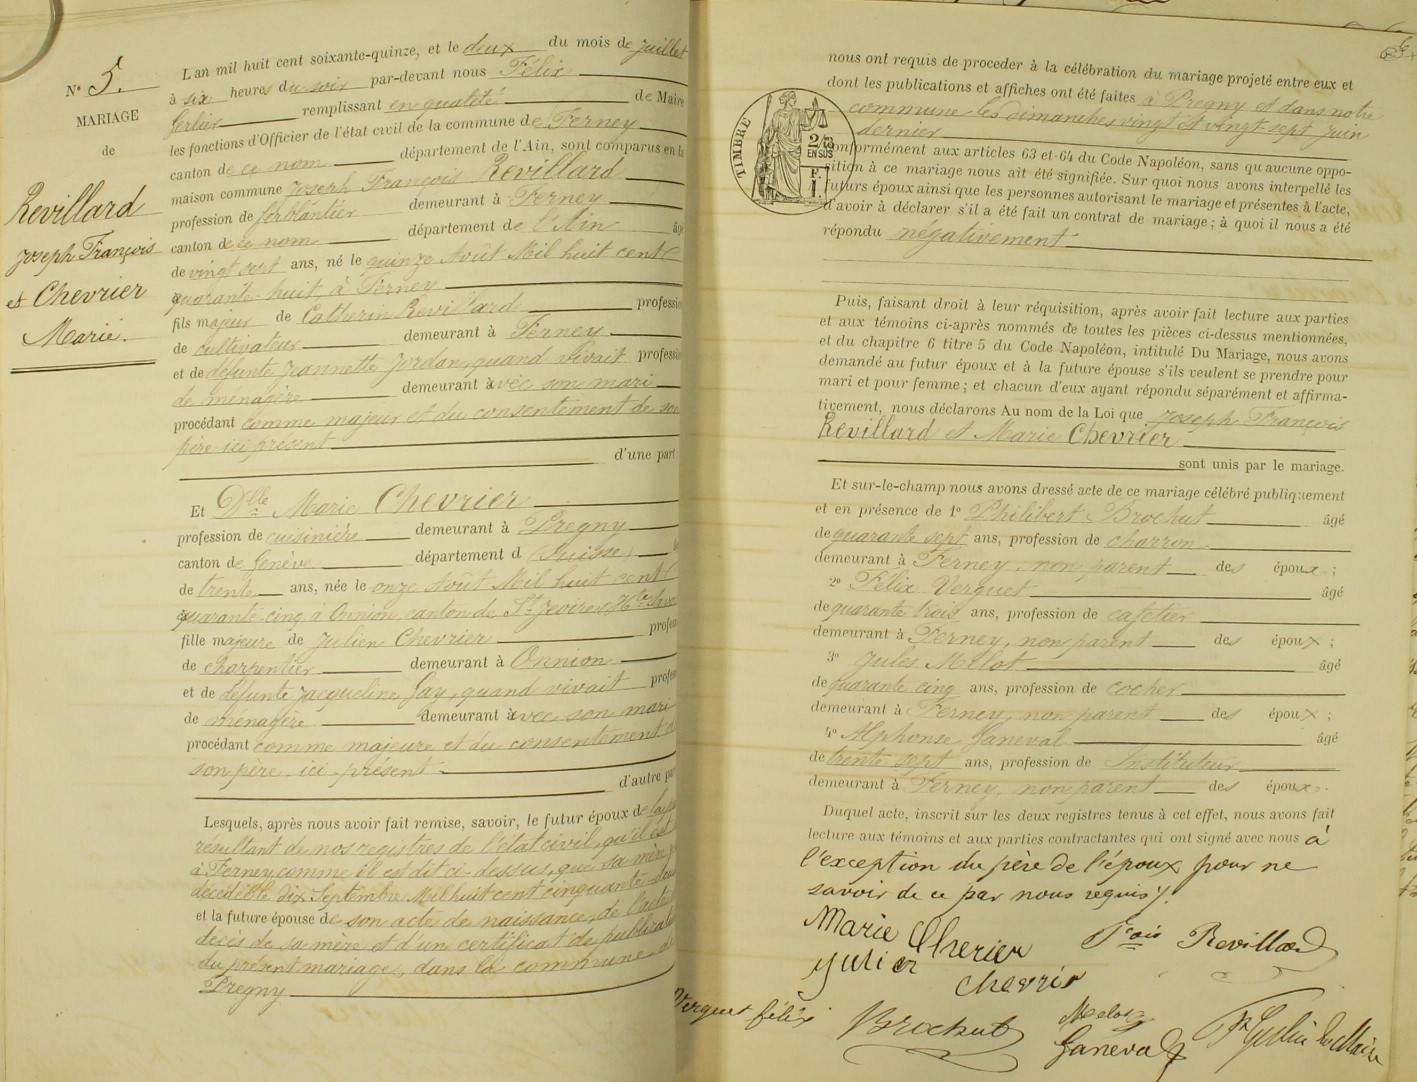 N° 5.
MARIAGE
de
Revillard
Joseph François
et Chevrier
Marie.
L'an mil huit cent soixante-quinze, et le deux du mois de juillet
à six heures du soir par-devant nous Félix
remplissant en qualité de Maire
les fonctions d'Officier de l'état civil de la commune de Ferney
canton de ce nom département de l'Ain, sont comparus en la
maison commune Joseph François Revillard
profession de ferblantier demeurant à Ferney
canton de ce nom département de l'Ain âgé
de vingt sept ans, né le quinze Août Mil huit cent
quarante-huit, à Ferney
fils majeur de Catherin Revillard profession
de cultivateur demeurant à Ferney
et de défunte Jeannette Jordan, quand vivait profession
de ménagère demeurant avec son mari
procédant comme majeur et du consentement de son
père ici présent
d'une part
Et Dlle Marie Chevrier
profession de cuisinière demeurant à Pregny
canton de Genève département d (Suisse)
de trente ans, née le onze Aout Mil huit cent
quarante-cinq à Onnion canton de St Jeoire (Hte Savoie
fille majeure de Julien Chevrier profes
de charpentier demeurant à Onnion
et de défunte Jacqueline Gay, quand vivait profes
de ménagère demeurant avec son mari
procédant comme majeure et du consentement de
son père ici présent
d'autre part
Lesquels, après nous avoir fait remise, savoir, le futur époux de
résultant de nos registres de l'état civil, qu'il est
à Ferney comme il est dit ci-dessus, que sa mère y
décédée le dix Septembre Mil huit cent cinquante
et la future épouse de son acte de naissance, de l'acte
décès de sa mère et d'un certificat de publication
du présent mariage, dans la commune de
Pregny
nous ont requis de proceder à la célébration du mariage projeté entre eux et
dont les publications et affiches ont été faites à Pregny et dans notre
commune les dimanches vingt et vingt-sept juin
dernier
TIMBRE
2/10
EN SUS
F.
1.
conformément aux articles 63 et 64 du Code Napoléon, sans qu'aucune oppo-
sition à ce mariage nous ait été signifiée. Sur quoi nous avons interpellé les
futurs époux ainsi que les personnes autorisant le mariage et présentes à l'acte,
d'avoir à déclarer s'il a été fait un contrat de mariage ; à quoi il nous a été
répondu négativement
Puis, faisant droit à leur réquisition, après avoir fait lecture aux parties
et aux témoins ci-après nommés de toutes les pièces ci-dessus mentionnées,
et du chapitre 6 titre 5 du Code Napoléon, intitulé Du Mariage, nous avons
demandé au futur époux et à la future épouse s'ils veulent se prendre pour
mari et pour femme ; et chacun d'eux ayant répondu séparément et affirma-
tivement, nous déclarons Au nom de la Loi que Joseph François
Revillard et Marie Chevrier
sont unis par le mariage.
Et sur-le-champ nous avons dressé acte de ce mariage célébré publiquement
et en présence de 1° Philibert Brochut âgé
de quarante sept ans, profession de charron
demeurant à Ferney, non parent des époux ;
2° Félix Verguet âgé
de quarante trois ans, profession de cafetier
demeurant à Ferney, non parent des époux ;
3° Jules Melot âgé
de quarante cinq ans, profession de cocher
demeurant à Ferney, non parent des époux ;
4° Alphonse Ganeval âgé
de trente sept ans, profession de Instituteur
demeurant à Ferney, non parent des époux.
Duquel acte, inscrit sur les deux registres tenus à cet effet, nous avons fait
lecture aux témoins et aux parties contractantes qui ont signé avec nous à
l'exception du père de l'époux pour ne
savoir de ce par nous requis /.
Marie Cherier Fcois Revillard
Julien
chevrir
Verguet félix Brochut Melot
Ganeval